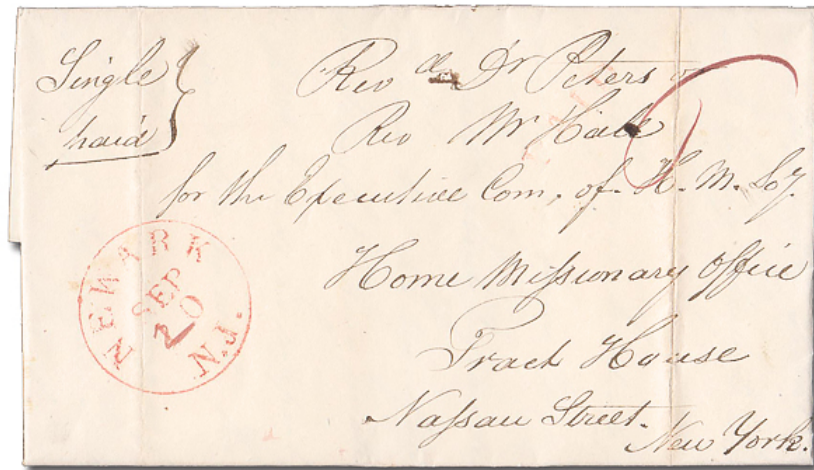 Single
paid
Revd Dr Peters or
Rev Mr Hale
for the Executive Com, of H. M. Soy.
Home Missionary Office
Tract House
Nassau Street.
New York.
NEWARK
SEP
20
N.J.